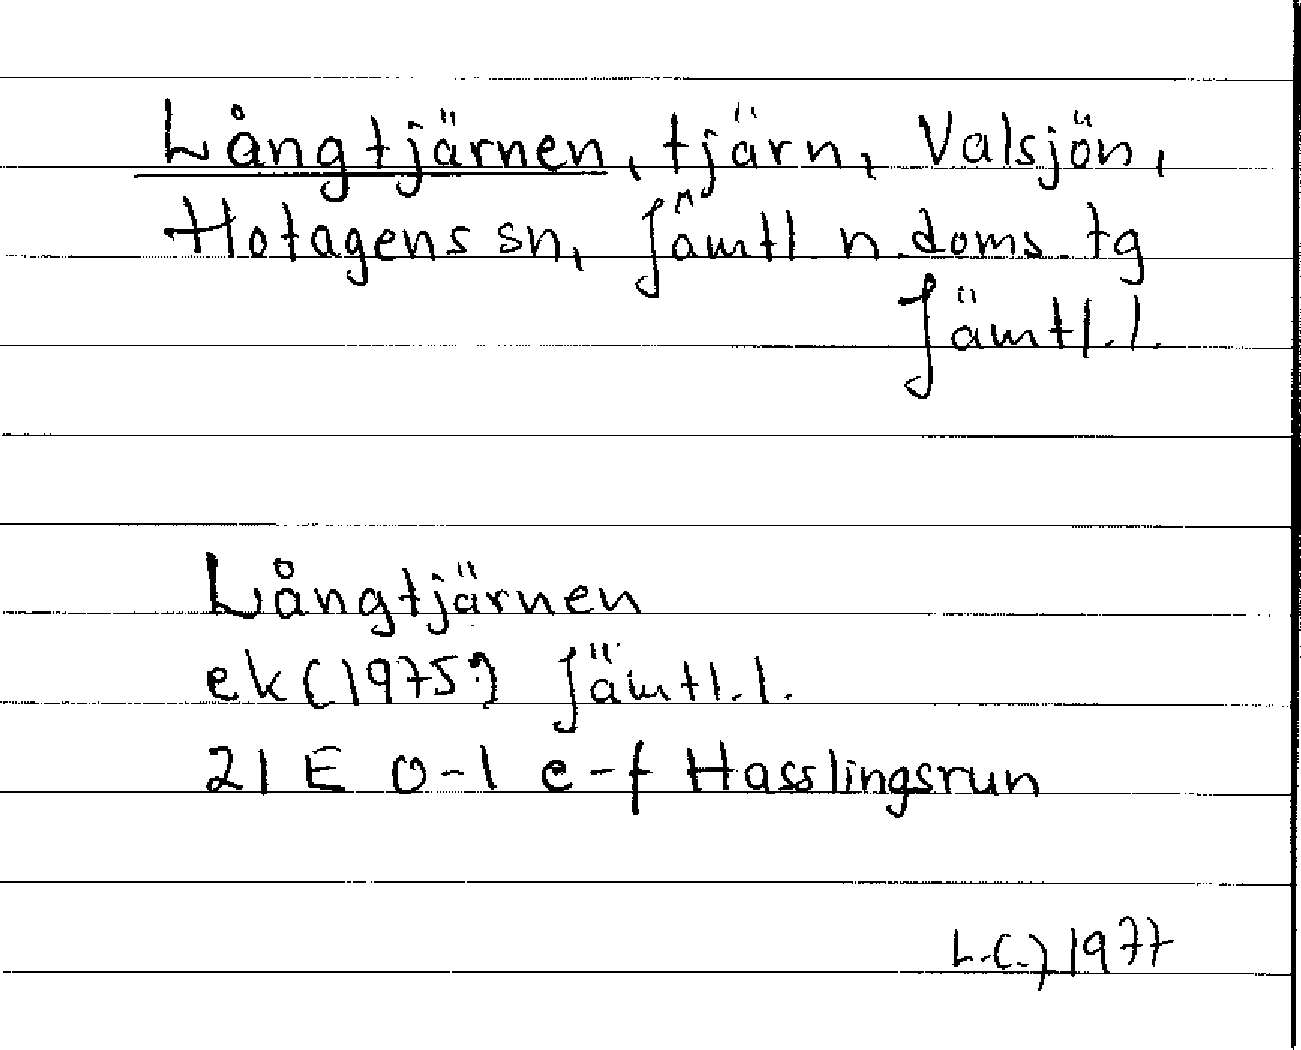 Långtjärnen, tjärn, Valsjön,
Hotagens sn, Jämtl n. doms. tg
Jämtl. l.
Långtjärnen
ek (1975?) Jämtl. l.
21 E 0-1 e-f Hasslingsrun
1977